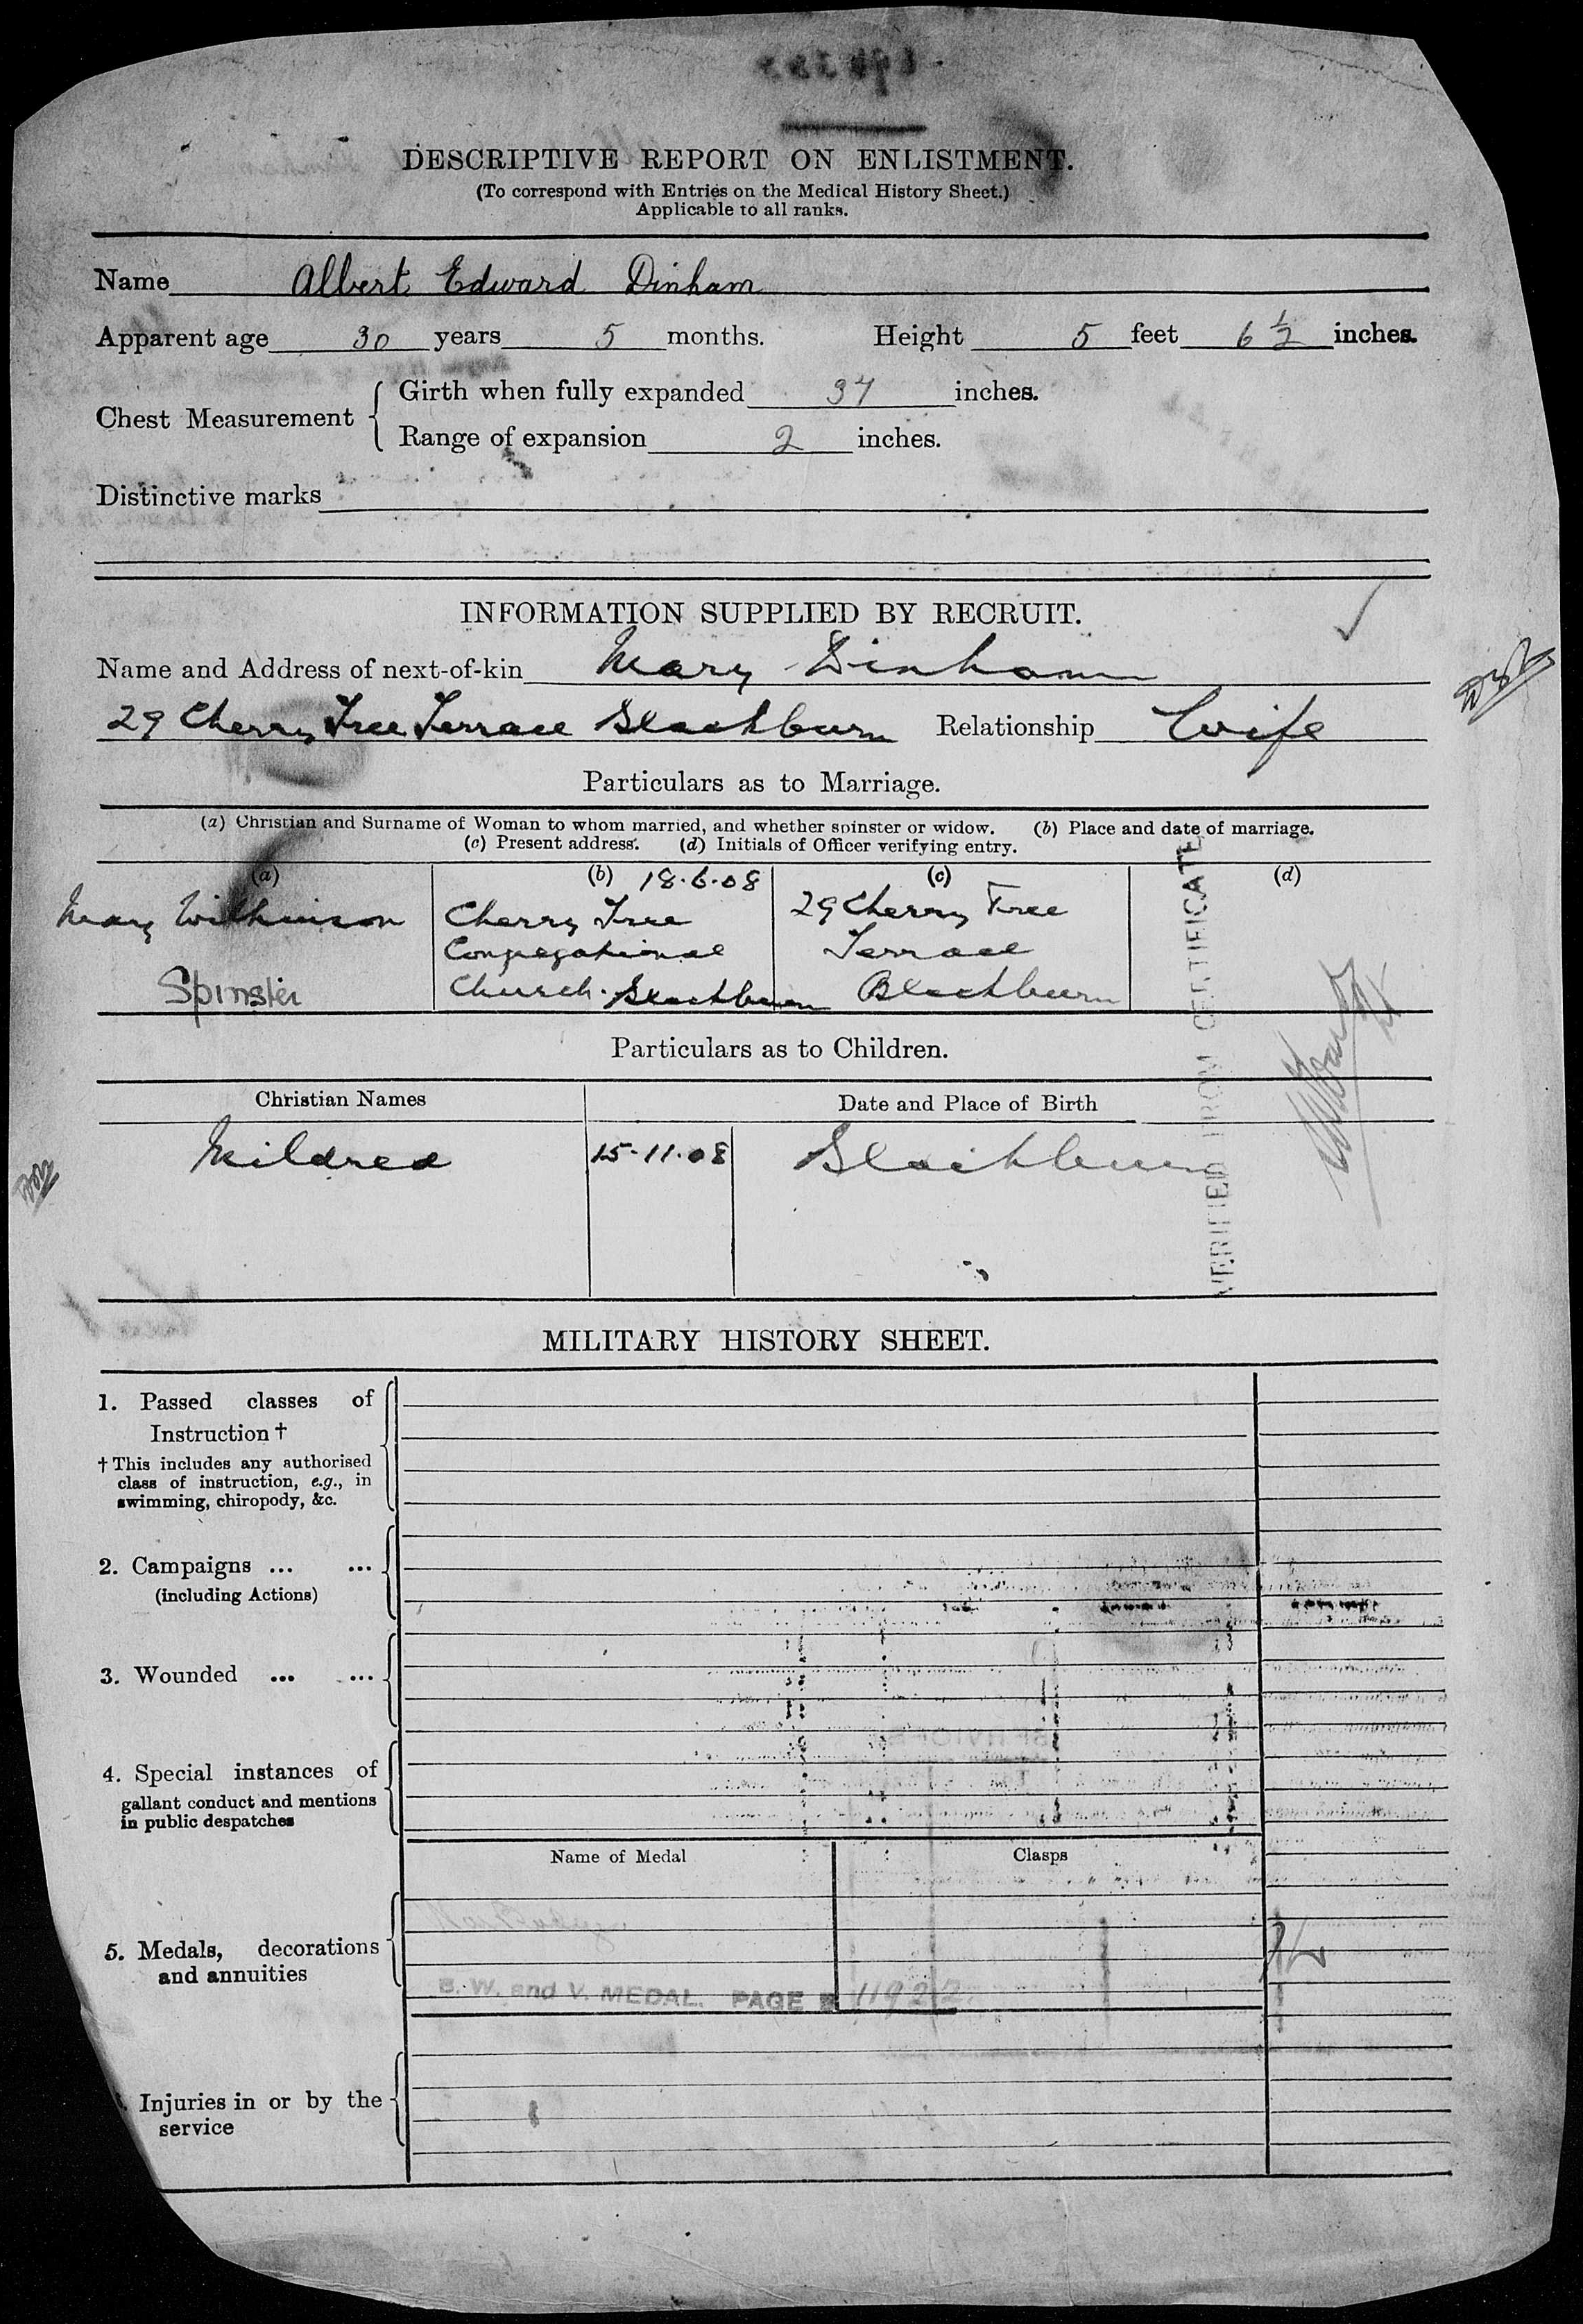 DESCRIPTIVE REPORT ON ENLISTMENT.
(To correspond with Entries on the Medical History Sheet.)
Applicable to all ranks.
Name Albert Edward Dinham
Apparent age 30 years 5 months. Height 5 feet 6 1/2 inches.
Chest Measurement { Girth when fully expanded 37 inches.
Range of expansion 2 inches.
Distinctive marks
INFORMATION SUPPLIED BY RECRUIT.
Name and Address of next-of-kin Mary Dinham
29 Cherry Tree Terrace Blackburn Relationship Wife
Particulars as to Marriage.
(a) Christian and Surname of Woman to whom married, and whether spinster or widow. (b) Place and date of marriage.
(c) Present address. (d) Initials of Officer verifying entry.
(a) (b) 18.6.08 (c) (d)
Mary Wilkinson Cherry Tree 29 Cherry Tree
Congregational Terrace
Spinster Church. Blackburn Blackburn
VERIFIED FROM CERTIFICATE
Particulars as to Children.
Christian Names Date and Place of Birth
Mildred 15-11-08 Blackburn
MILITARY HISTORY SHEET.
1. Passed classes of
Instruction †
† This includes any authorised
class of instruction, e.g., in
swimming, chiropody, &c.
2. Campaigns ... ...
(including Actions)
3. Wounded ... ...
4. Special instances of
gallant conduct and mentions
in public despatches
Name of Medal Clasps
5. Medals, decorations
and annuities
B. W. and V. MEDAL. PAGE
Injuries in or by the
service